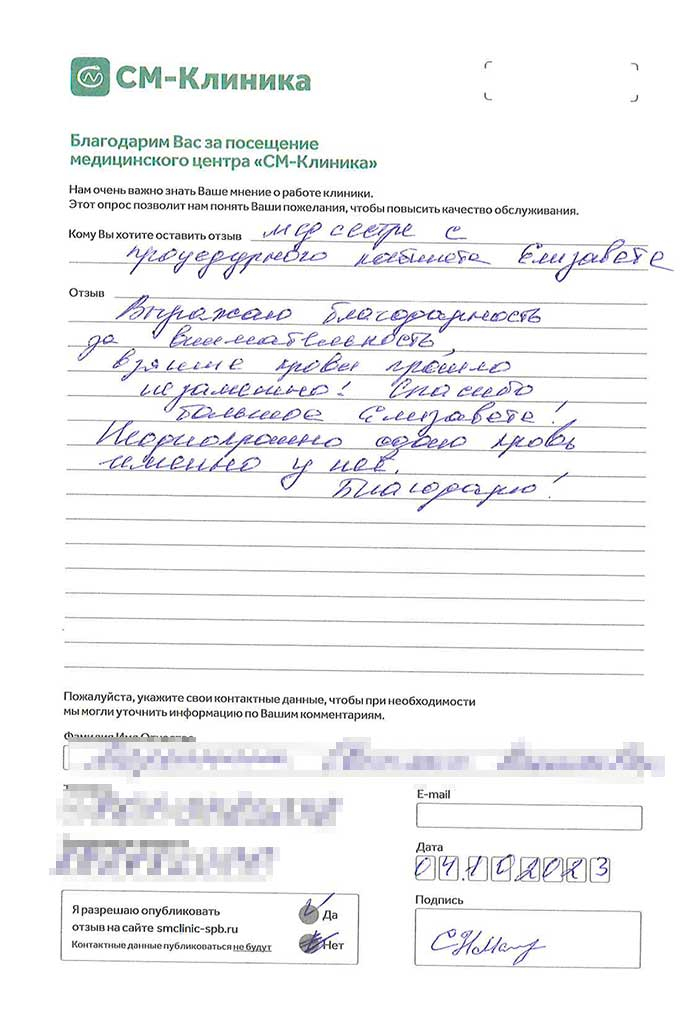 СМ-Клиника
Благодарим Вас за посещение
медицинского центра «СМ-Клиника»
Нам очень важно знать Ваше мнение о работе клиники.
Этот опрос позволит нам понять Ваши пожелания, чтобы повысить качество обслуживания.
Кому Вы хотите оставить отзыв медсестре с
процедурного кабинета Елизавете
Отзыв
Выражаю благодарность
за внимательность,
взятие крови прошло
незаметно! Спасибо
большое Елизавете!
Неоднократно сдаю кровь
именно у неё.
Благодарю!
Пожалуйста, укажите свои контактные данные, чтобы при необходимости
мы могли уточнить информацию по Вашим комментариям.
Фамилия Имя Отчество
E-mail
Дата
04.10 2023
Подпись
Я разрешаю опубликовать
отзыв на сайте smclinic-spb.ru
Контактные данные публиковаться не будут
Да
Нет